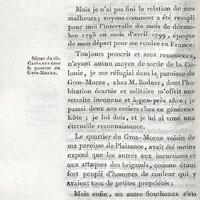 Mais je n'ai pas fini la relation de mes
malheurs; voyons comment a été rempli
pour moi l'intervalle du mois de décem-
bre 1793 au mois d'avril 1799, époque
de mon départ pour me rendre en France.
Toujours proscrit et sans ressources,
n'ayant aucun moyen de sortir de la Co-
lonie, je me réfugiai dans la paroisse du
Gros-Morne, chez M. Rodner, dont l'ha-
bitation écartée et solitaire m'offrait une
retraite inconnue et à peu près sûre; je
passai deux ans entiers chez ce généreux
hôte; je lui dois, et je lui ai voué une
éternelle reconnaissance.
Séjour du cit.
dans
la paroisse du
Gros-Morne.
Le quartier du Gros-Morne voisin de
ma paroisse de Plaisance, avait été moins
exposé que les autres aux incursions et
aux attaques des brigands, comme étant
fort peuplé d'hommes de couleur qui y
avaient tous de petites propriétés;
Mais enfin, un autre Sonthonax s'en